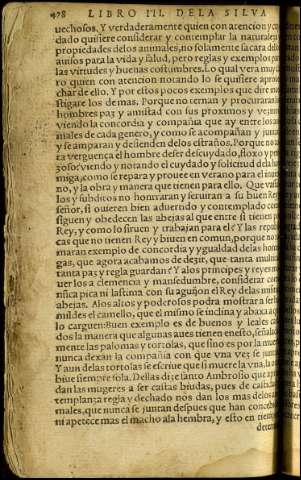 478 LIBRO III. DELA SILVA
uechosos. Y verdaderamente quien con atencion y
dado quisiere considerar y contemplar la naturaleza
propiedades delos animales, no solamente sacara dello
auisos para la vida y salud, pero reglas y exemplos para
las virtudes y buenas costumbres. Lo qual vera muy
ro quien con atencion notando lo se quisiere apro
char de ello. Y por estos pocos exemplos que dire
stigare los demas. Porque no ternan y procuraran
hombres paz y amistad con sus proximos y vezinos
viendo la concordia y compañia que ay entre los
males de cada genero, y como se acompañan y juntan
y se amparan y defienden delos estraños, Porque no
ra verguença el hombre deser descuydado, floxo y
yoso? viendo y notando el cuydado y solicitud dela
miga, como se repara y prouee en verano para el
no, y la obra y manera que tienen para ello. Que
los y subditos no honrraran y seruiran a su buen Rey
señor, si quieren bien aduertir y contemplar como
siguen y obedecen las abejas al que entre si tienen por
Rey, y como lo siruen y trabajan para el? Y las
cas que no tienen Rey y biuen en comun, porque no
maran exemplo de concordia y ygualdad delas
gas, que agora acabamos de dezir, que tanta
tanta paz y regla guardan? Y alos principes y reyes
uer los a clemencia y mansedumbre, considerar como
nūca pica ni lastima con su aguijon el Rey delas
abejas. Alos altos y poderosos podra mostrar a ser
mildes el camello, que el mismo se inclina y abaxa
lo carguen: Buen exemplo es de buenos y leales
dos la manera que algunas aues tienen enesto, señala
mente las palomas y tortolas, que sino es por la muerte
nunca dexan la compañia con que vna vez se juntan
Y aun delas tortolas se escriue que si muere la vna, la
biue siempre sola. Dellas dize sancto Ambrosio que
dan las mugeres a ser castas biudas, pues de castidad
templança regla y dechado nos dan los mas delos
males, que nunca se juntan despues que han conceb
ni apetece mas el macho ala hembra, y esto en tiempo